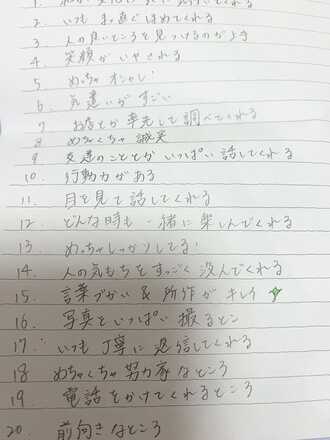 2. いつも まっ直ぐ ほめてくれる
3 人の良いところを見つけるのが上手
4. 笑顔が いやされる
5 めっちゃ オシャレ!
6 気遣いが すごい
7 お店とか 率先して 調べてくれる
8 めちゃくちゃ 誠実
9 友達のこととか いっぱい 話してくれる
10. 行動力がある
11. 目を見て話してくれる
12. どんな時も 一緒に 楽しんでくれる
13. めっちゃしっかりしてる!
14. 人の気もちを すっごく 汲んでくれる
15 言葉づかい & 所作が キレイ
16. 写真を いっぱい 撮るとこ
17. いつも 丁寧に 返信してくれる
18 めちゃくちゃ 努力家なところ
19. 電話をかけてくれるところ
20 前向きなところ